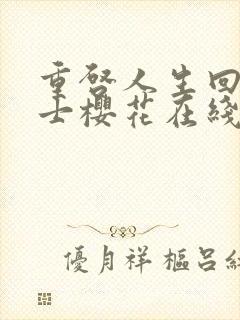 重啓人生回
士櫻花在綫
優月祥樞呂